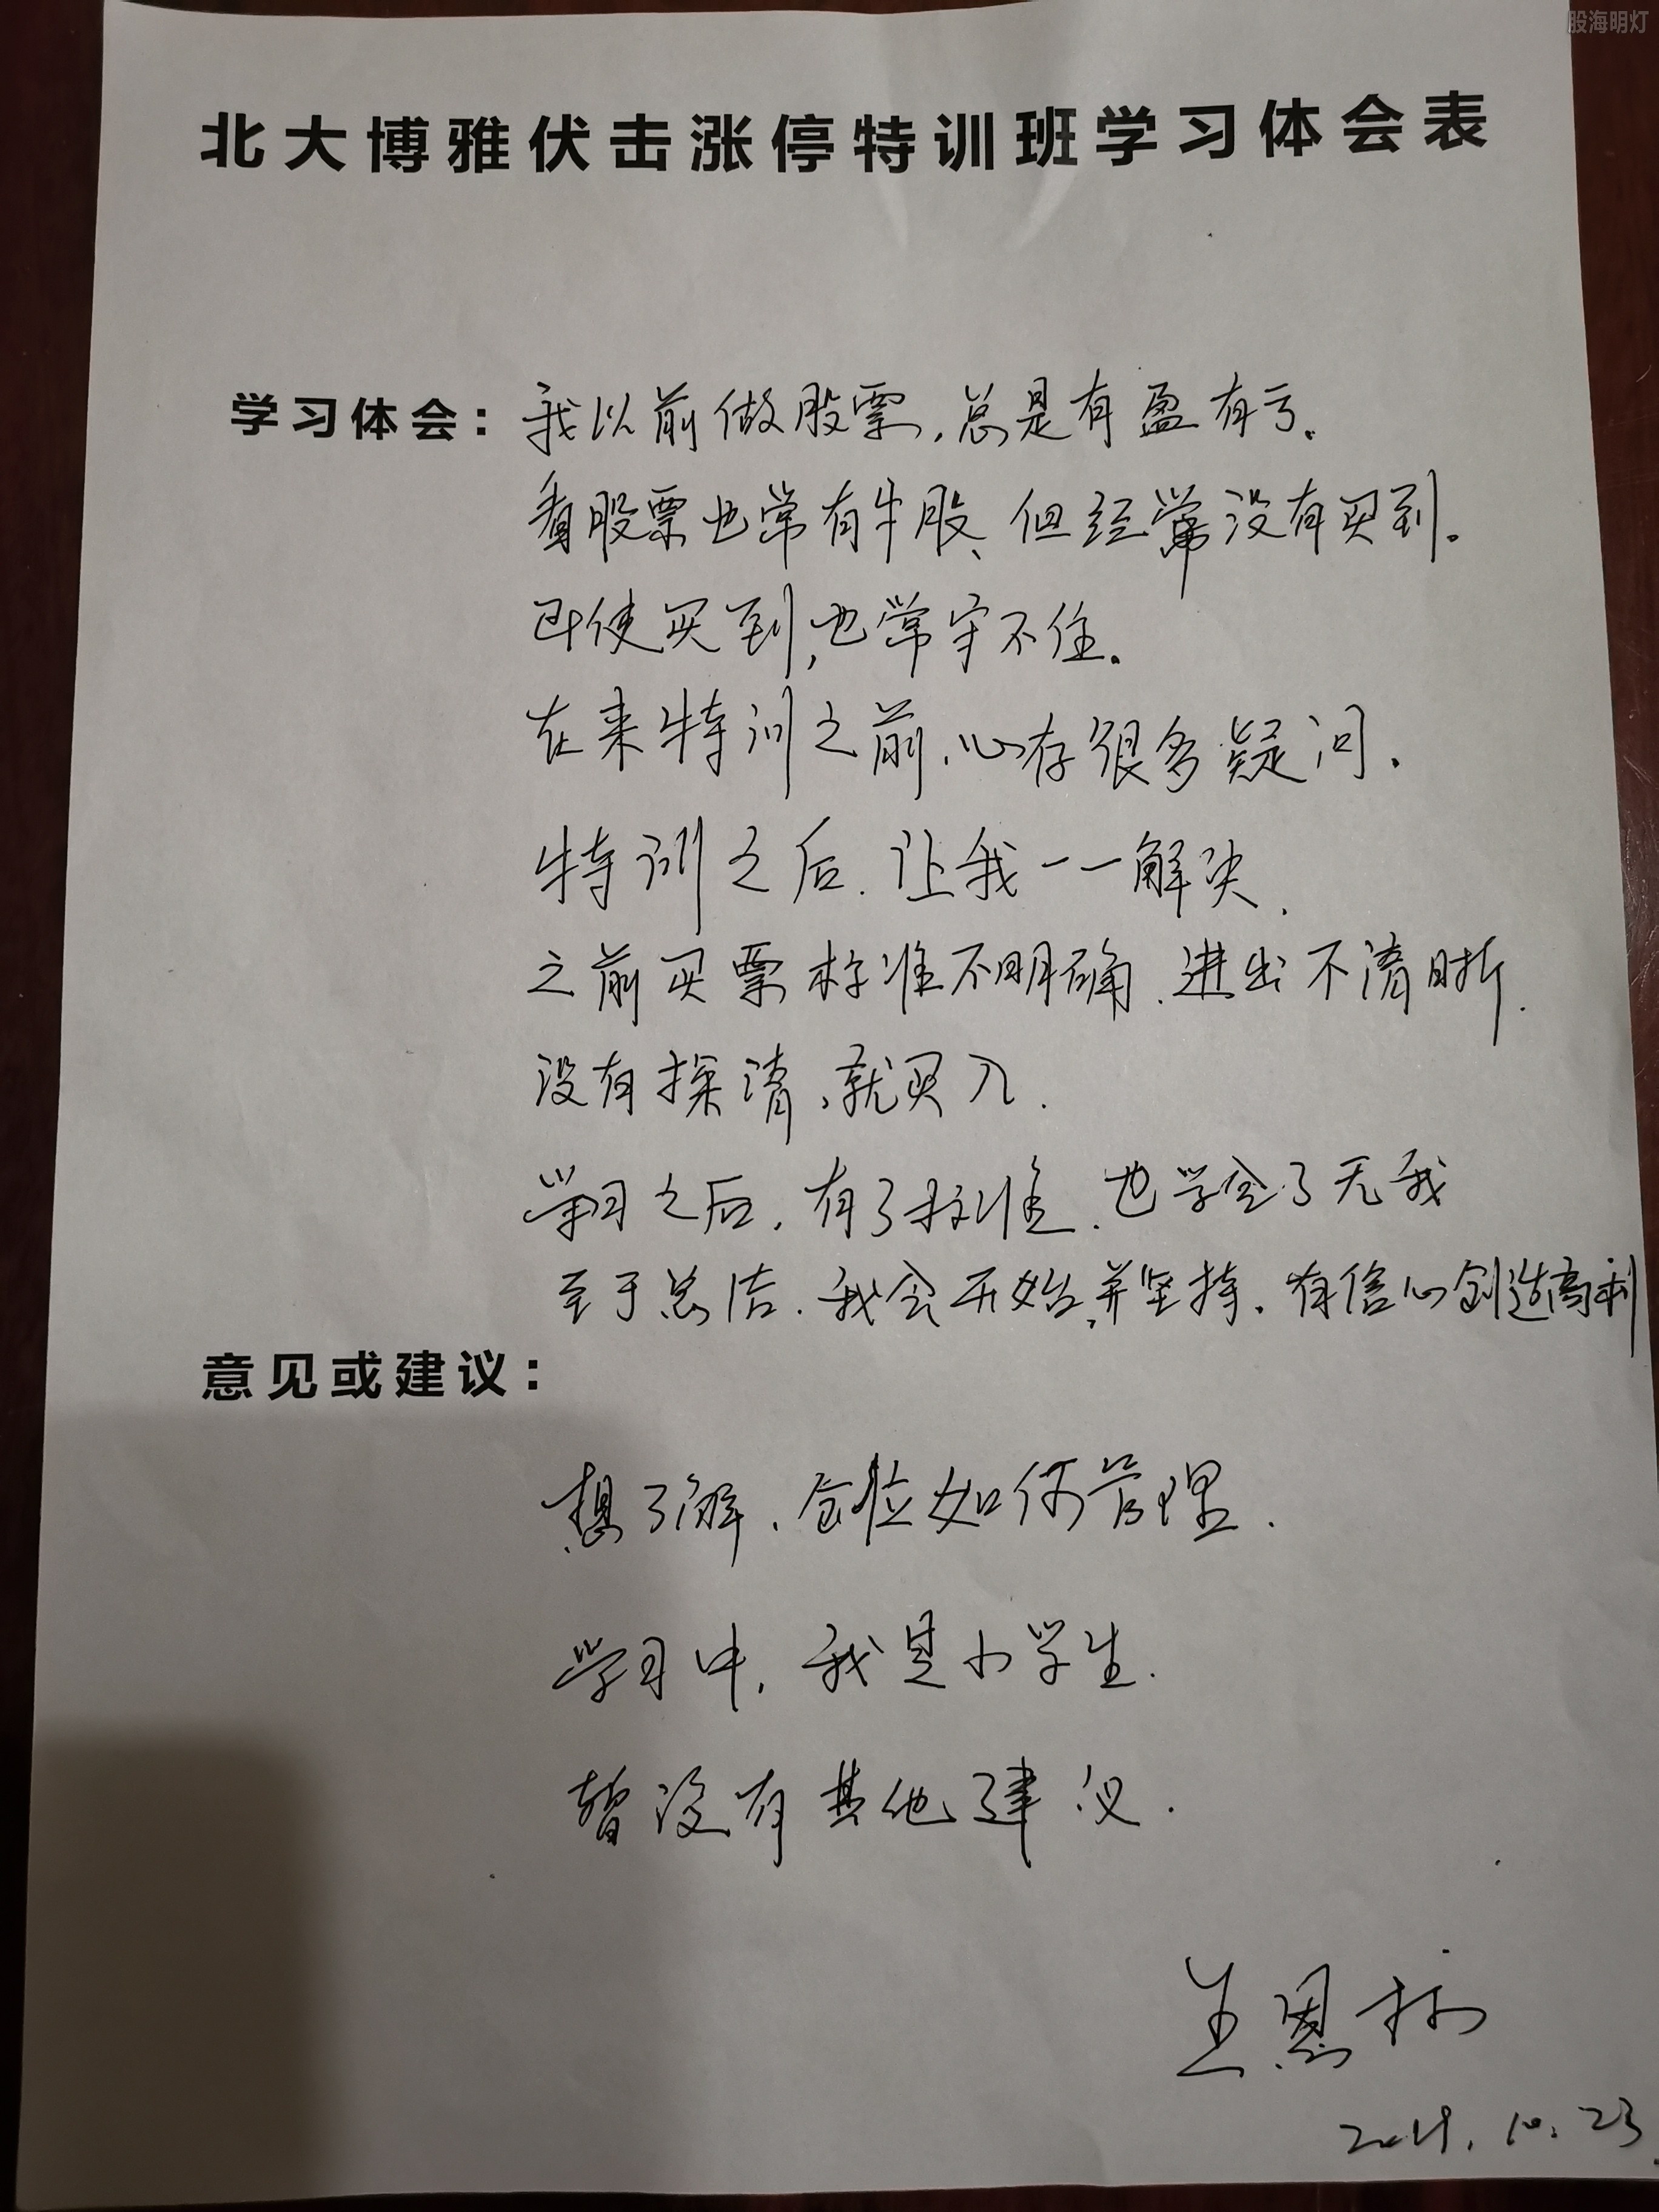 股海明灯
北大博雅伏击涨停特训班学习体会表
学习体会：我以前做股票，总是有盈有亏。
看股票也常有牛股、但经常没有买到。
即使买到，也常守不住。
在来特训之前，心存很多疑问。
特训之后．让我一一解决．
之前买票标准不明确．进出不清晰．
没有探清，就买入．
学习之后，有了标准．也学会了无我
至于总结．我会开始，并坚持．有信心创造高利
意见或建议：
想了解．仓位如何管理．
学习中，我是小学生．
暂没有其他建议．
王恩
10.23